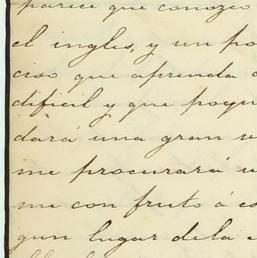 parece que conozco
el ingles, y un po
ciso que aprenda
dificil y que poqu
dará una gran
me procurará
me con fruto á
gun lugar de la